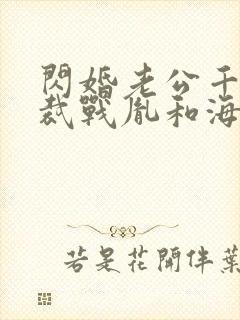 閃婚老公千
裁戰胤和海
若是花開伴葉